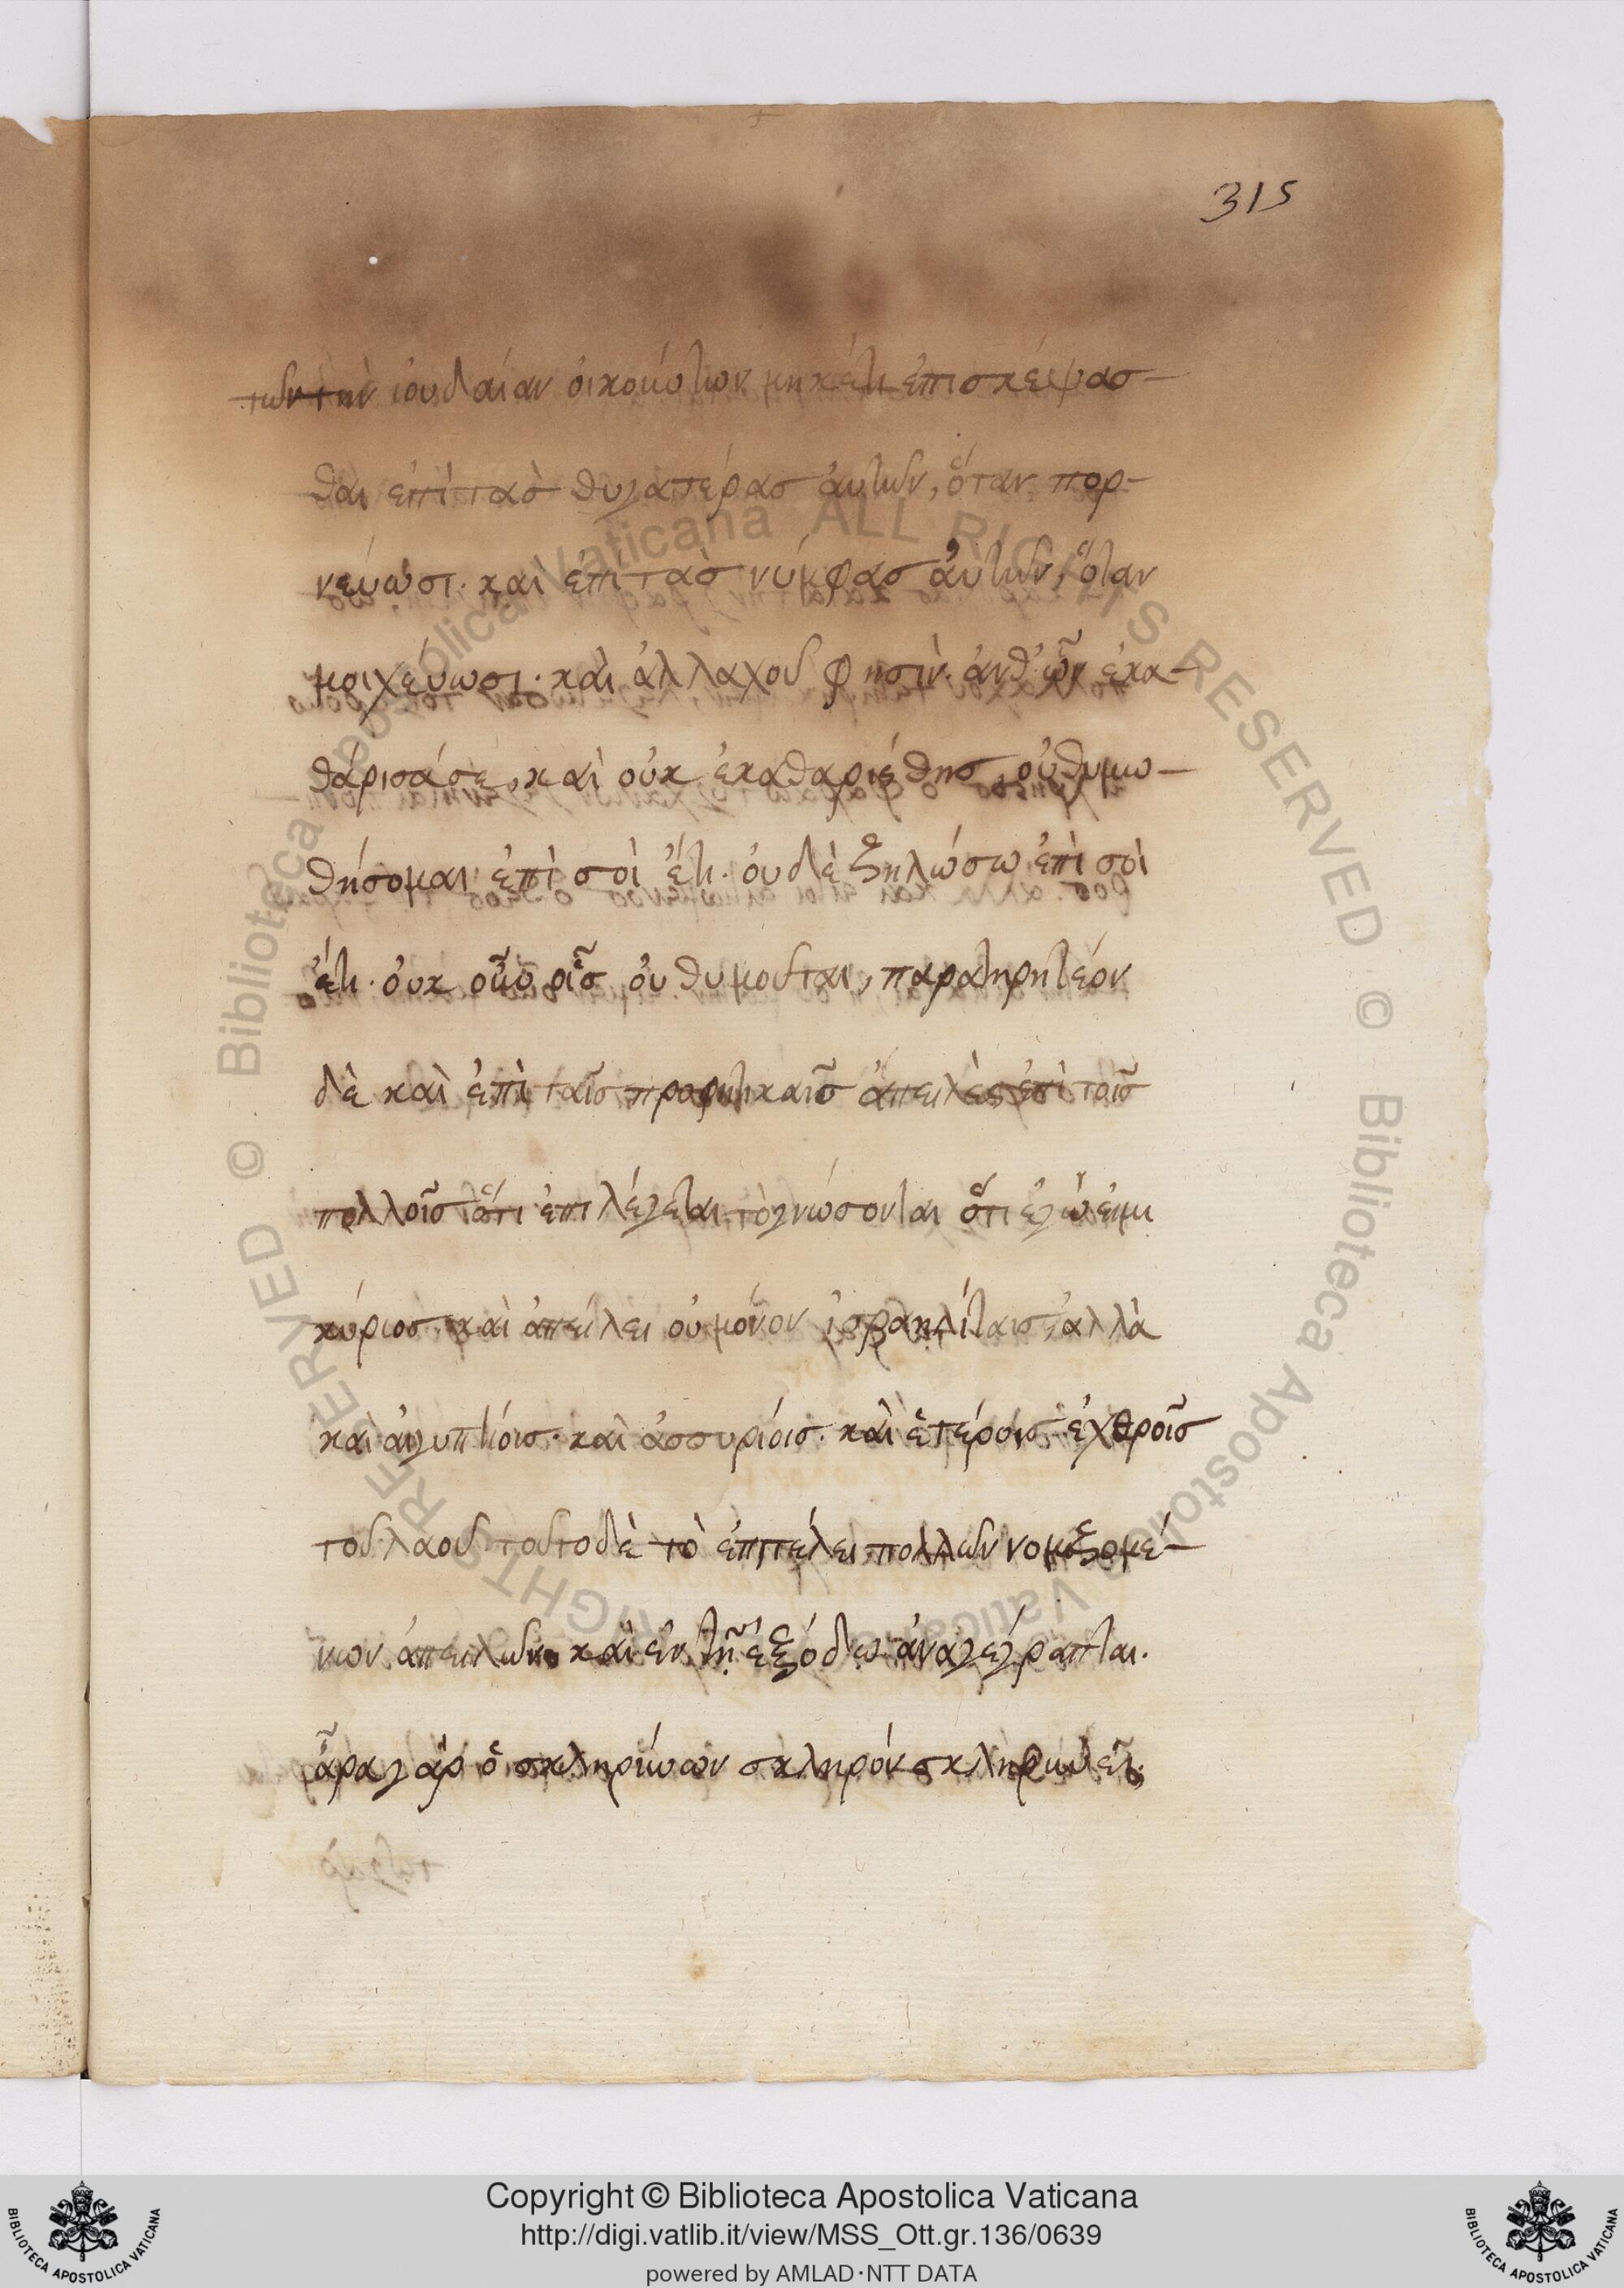 315
τῶν τὴν ἰουδαίαν οἰκούντων μηκέτι ἐπισκέψασ-
θαι ἐπὶ τὰσ θυγατέρασ ἀυτῶν, ὅταν πορ-
νεύωσι· καὶ ἐπὶ τὰσ νύμφασ ἀυτῶν, ὅταν
μοιχεύωσι· καὶ ἀλλαχοῦ φησὶν· ἀνθ' ὧν ἐκα-
θάρισά σε, καὶ οὐκ ἐκαθαρίσθησ, οὐ θυμω-
θήσομαι ἐπὶ σοὶ ἔτι· ὀυδὲ ζηλώσω ἐπὶ σοὶ
ἔτι· ὀυκ οὖν οἷσ ὀυ θυμοῦται, παρατηρητέον
δὲ καὶ ἐπὶ ταῖσ προφητικαῖσ ἀπειλὲς ἐπὶ τοῖσ
πολλοῖσ ὅτι ἐπιλέγεται τὸ γνώσονται ὅτι ἐγὼ εἰμι
κύριοσ· καὶ ἀπείλει οὐ μόνον ἰσραηλίταισ, ἀλλὰ
καὶ αἰγυπτίοισ· καὶ ἀσσυρίοισ· καὶ ἑτέροισ ἐχθροῖσ
τοῦ λαοῦ τοῦτο δὲ τὸ ἐπιτέλει πολλῶν νομιζομέ-
νων ἀπειλῶν· καὶ ἐν τῇ ἐξόδῳ ἀναγέγραπται·
ἆρα γὰρ ὁ σκληρύνων σκληρὸν σκληρύνει;
Copyright © Biblioteca Apostolica Vaticana
http://digi.vatlib.it/view/MSS_Ott.gr.136/0639
powered by AMLAD·NTT DATA
BIBLIOTECA APOSTOLICA VATICANA
BIBLIOTECA APOSTOLICA VATICANA
© Biblioteca Apostolica Vaticana ALL RIGHTS RESERVED © Biblioteca Apostolica Vaticana ALL RIGHTS RESERVED